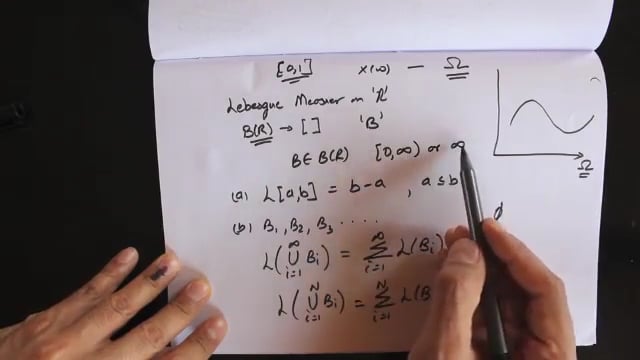 [0,1] X(ω) — Ω
Lebesgue Measuer on 'R'
B(R) → [ ] 'B'
B ∈ B(R) [0,∞) or ∞
(a) L[a,b] = b-a , a ≤ b
(b) B₁, B₂, B₃ ....
L(∪_{i=1}^{∞} B_i) = Σ_{i=1}^{∞} L(B_i)
L(∪_{i=1}^{N} B_i) = Σ_{i=1}^{N} L(B
Ω